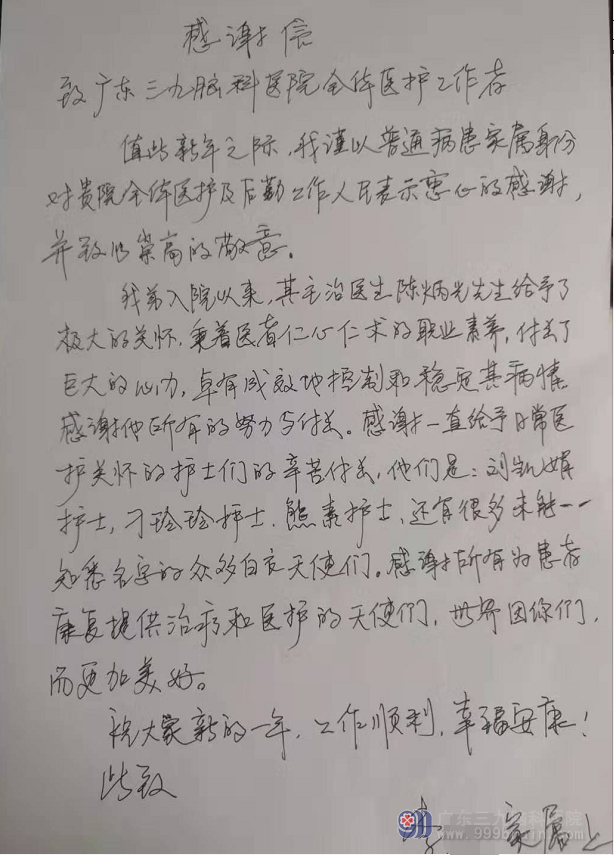 感谢信
致广东三九脑科医院全体医护工作者
值此新年之际，我谨以普通病患家属身份
对贵院全体医护及后勤工作人民表示衷心的感谢，
并致以崇高的敬意。
我弟入院以来，其主治医生陈炳光先生给予了
极大的关怀，秉着医者仁心仁术的职业素养，付出了
巨大的心力，卓有成效地控制和稳定其病情。
感谢他所有的努力与付出。感谢一直给予日常医
护关怀的护士们的辛苦付出，他们是：刘凯娟
护士，刁玲玲护士，熊素护士，还有很多未能一一
知悉名字的众多白衣天使们。感谢所有为患者
康复提供治疗和医护的天使们，世界因你们，
而更加美好。
祝大家新的一年，工作顺利，幸福安康！
此致
李 家属上
广东三九脑科医院
www.999brain.com